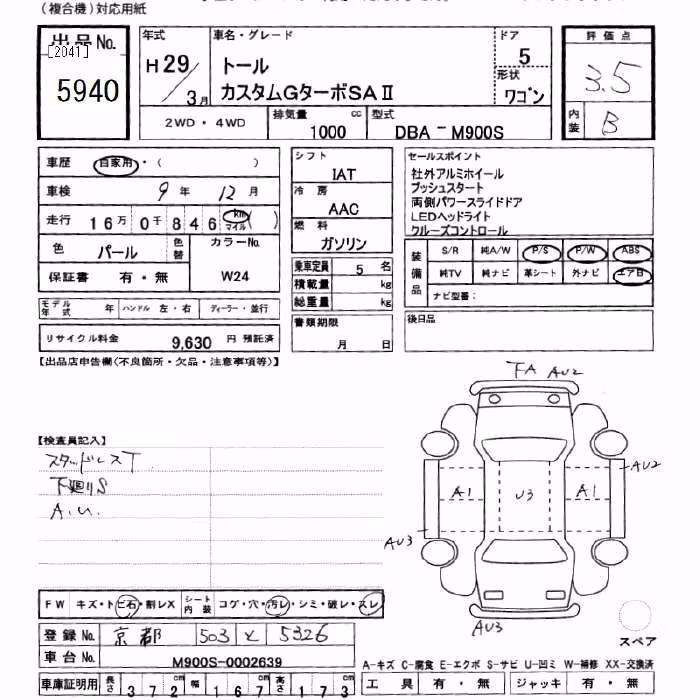 (複合機)対応用紙
出品No.
[2041]
5940
年式
H29/3月
車名・グレード
トール
カスタムGターボSAⅡ
ドア
5
形状
ワゴン
評価点
3.5
内装
B
2WD・4WD
排気量
1000 cc
型式
DBA-M900S
車歴 自家用・( )
車検 9年 12月
走行 16万 0千 846 km マイル ( )
色 パール 色替
カラーNo.
W24
保証書 有・無
モデル年式 年 ハンドル 左・右 ディーラー・並行
リサイクル料金 9,630 円 預託済
シフト
IAT
冷房
AAC
燃料
ガソリン
乗車定員 5 名
積載量 kg
総重量 kg
書類期限
月 日
セールスポイント
社外アルミホイール
プッシュスタート
両側パワースライドドア
LEDヘッドライト
クルーズコントロール
装備品
S/R 純A/W P/S P/W ABS
純TV 純ナビ 革シート 外ナビ エアB
ナビ型番:
後日品
【出品店申告欄(不良箇所・欠品・注意事項等)】
【検査員記入】
スタッドレスT
下廻りS
A.U.
FA AU2
AU2
A1
U3
A1
AU3
AU3
スペア
FW キズ・トビ石・割レX シート内装 コゲ・穴・汚レ・シミ・破レ・スレ
登録No. 京都 503 と 5326
車台No. M900S-0002639
車庫証明用 長さ 372cm 幅 167cm 高さ 173cm
A-キズ C-腐食 E-エクボ S-サビ U-凹ミ W-補修 XX-交換済
工具 有・無 ジャッキ 有・無